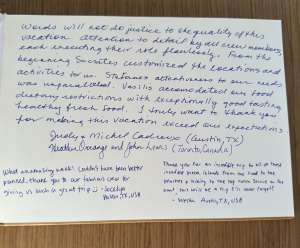 Words will not do justice to the quality of this
vacation. Attention to detail by all crew members,
each executing their role flawlessly. From the
beginning Socrates customized the locations and
activities to us. attentiveness to our needs
was unparalleled. Vasilis accomodated our food
dietary restrictions with exceptionally good tasting
healthy fresh food. I truly want to thank you
for making this vacation exceed our expectations
Judy + Michel (Austin, TX)
and John Lewis (Toronto, Canada)
What an amazing week! Couldn't have been better
planned, thank you to our fabulous crew for
giving us such a great trip :) - Jocelyn
Austin, TX, USA
Thank you for an incredible trip to all of these
incredible greek islands. From the food to the
beaches + hiking to the top notch service on the
boat, this will be a trip I'll never forget!
Austin, TX, USA